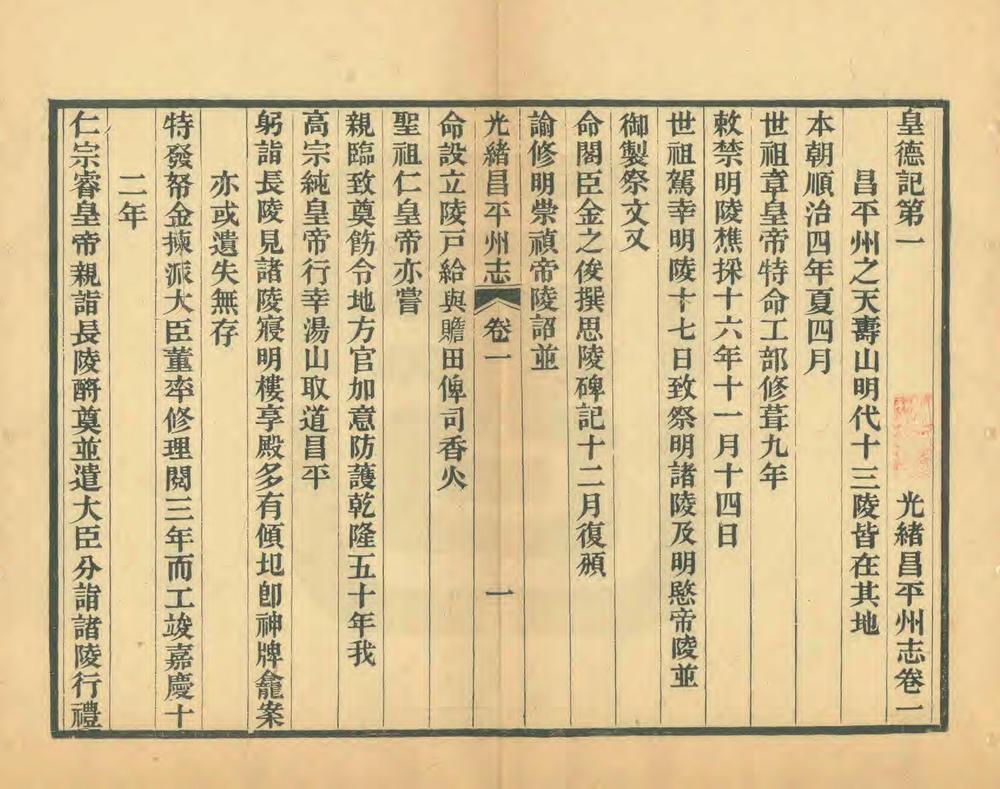 皇德記第一 光緒昌平州志卷一
昌平州之天壽山明代十三陵皆在其地
本朝順治四年夏四月
世祖章皇帝特命工部修葺九年
敕禁明陵樵採十六年十一月十四日
世祖駕幸明陵十七日致祭明諸陵及明愍帝陵並
御製祭文又
命閣臣金之俊撰思陵碑記十二月復頒
諭修明崇禎帝陵詔並
光緒昌平州志 卷一 一
命設立陵戶給與贍田俾司香火
聖祖仁皇帝亦嘗
親臨致奠飭令地方官加意防護乾隆五十年我
高宗純皇帝行幸湯山取道昌平
躬詣長陵見諸陵寢明樓享殿多有傾圮卽神牌龕案
亦或遺失無存
特發帑金揀派大臣董率修理閱三年而工竣嘉慶十
二年
仁宗睿皇帝親詣長陵酹奠並遣大臣分詣諸陵行禮